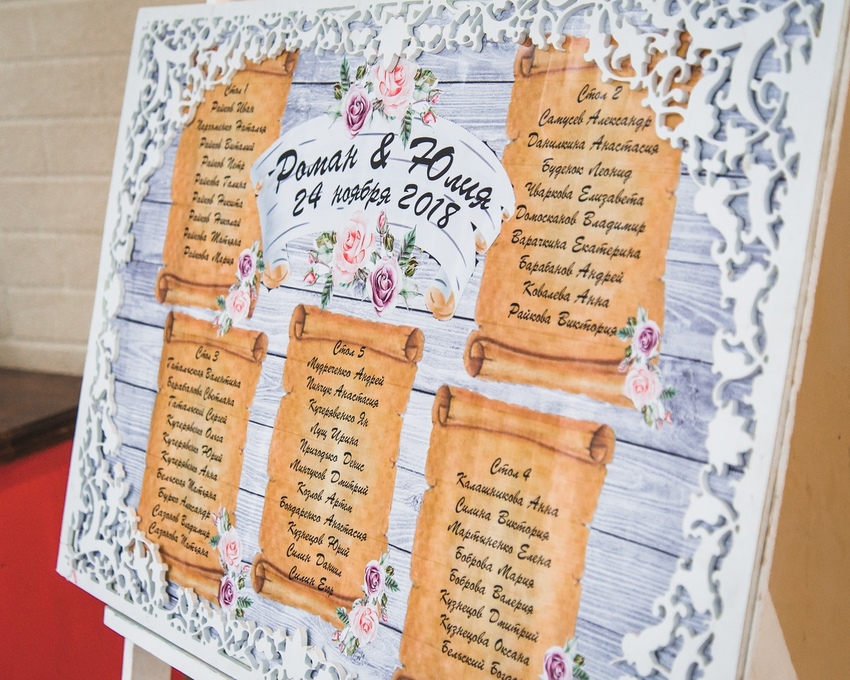 Роман & Юлия
24 ноября 2018
Стол 1
Райков Иван
Пархоменко Наталья
Райков Виталий
Райков Петр
Райкова Галина
Райков Никита
Райков Николай
Райкова Татьяна
Райкова Мария
Стол 2
Самусев Александр
Данилкина Анастасия
Буденок Леонид
Уваркова Елизавета
Домосканов Владимир
Варачкина Екатерина
Барабанов Андрей
Ковалева Анна
Райкова Виктория
Стол 3
Таталуская Валентина
Барабанова Светлана
Сергей
Кучерявенко Ольга
Кучерявенко Юрий
Кучерявенко Анна
Бельская Татьяна
Бурко Александр
Сазанов Владимир
Сазанова Татьяна
Стол 5
Мудреченко Андрей
Пинчук Анастасия
Кучерявенко Ян
Лущ Ирина
Пригодько Денис
Минчуков Дмитрий
Козлов Артём
Бондаренко Анастасия
Кузнецов Юрий
Силин Даниил
Силин Егор
Стол 4
Калашникова Анна
Силина Виктория
Мартыненко Елена
Боброва Мария
Боброва Валерия
Кузнецов Дмитрий
Кузнецова Оксана
Бельский